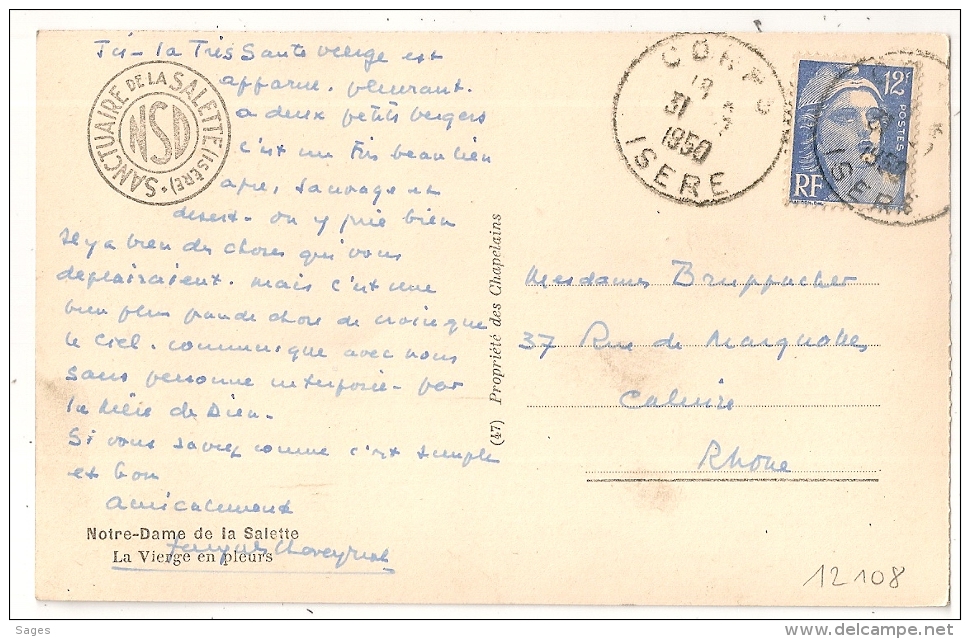 Ici - la Très Sainte vierge est
apparue. pleurant.
a deux petits bergers
c'est un très beau lieu
apre, sauvage et
desert - on y prie bien
il y a bien des choses qui vous
deplairaient. mais c'est une
bien plus grande chose de croire que
le Ciel. communique avec nous
sans personne interposée - par
la Mère de Dieu.
Si vous saviez comme c'est simple
et bon
amicalement
SANCTUAIRE DE LA SALETTE (ISÈRE)
NSD
Notre-Dame de la Salette
La Vierge en pleurs
(47) Propriété des Chapelains
CORPS
18
31
1950
ISERE
12F
POSTES
RF
Mesdames Bruppacher
37 Rue de Margnolles
Caluire
Rhône
12108
Sages
delcampe.net